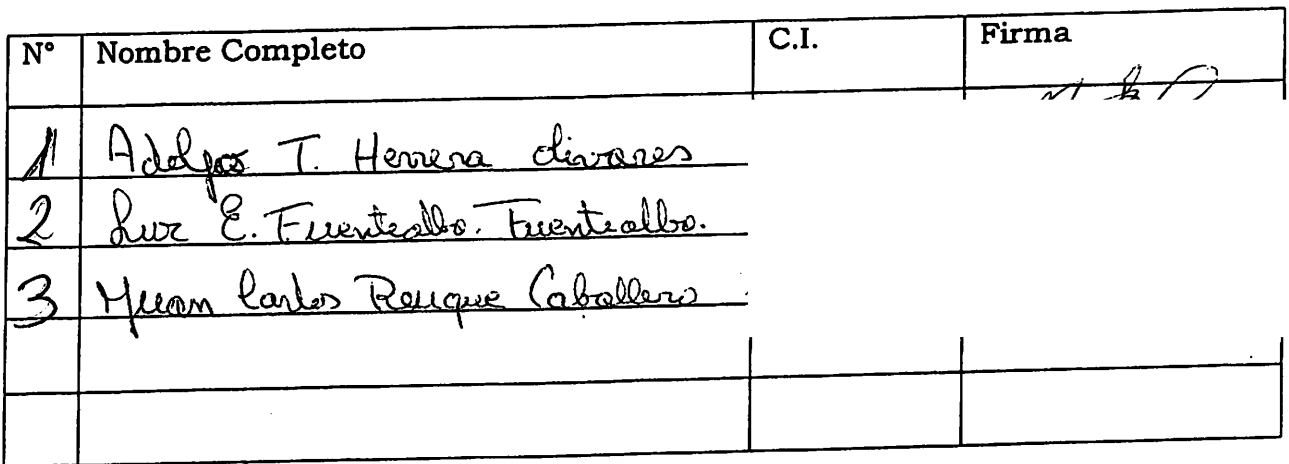 N° Nombre Completo C.I. Firma
1 Adolfo T. Herrera Olivares
2 Luz E. Fuentealba. Fuentealba.
3 Juan Carlos Reuque Caballero